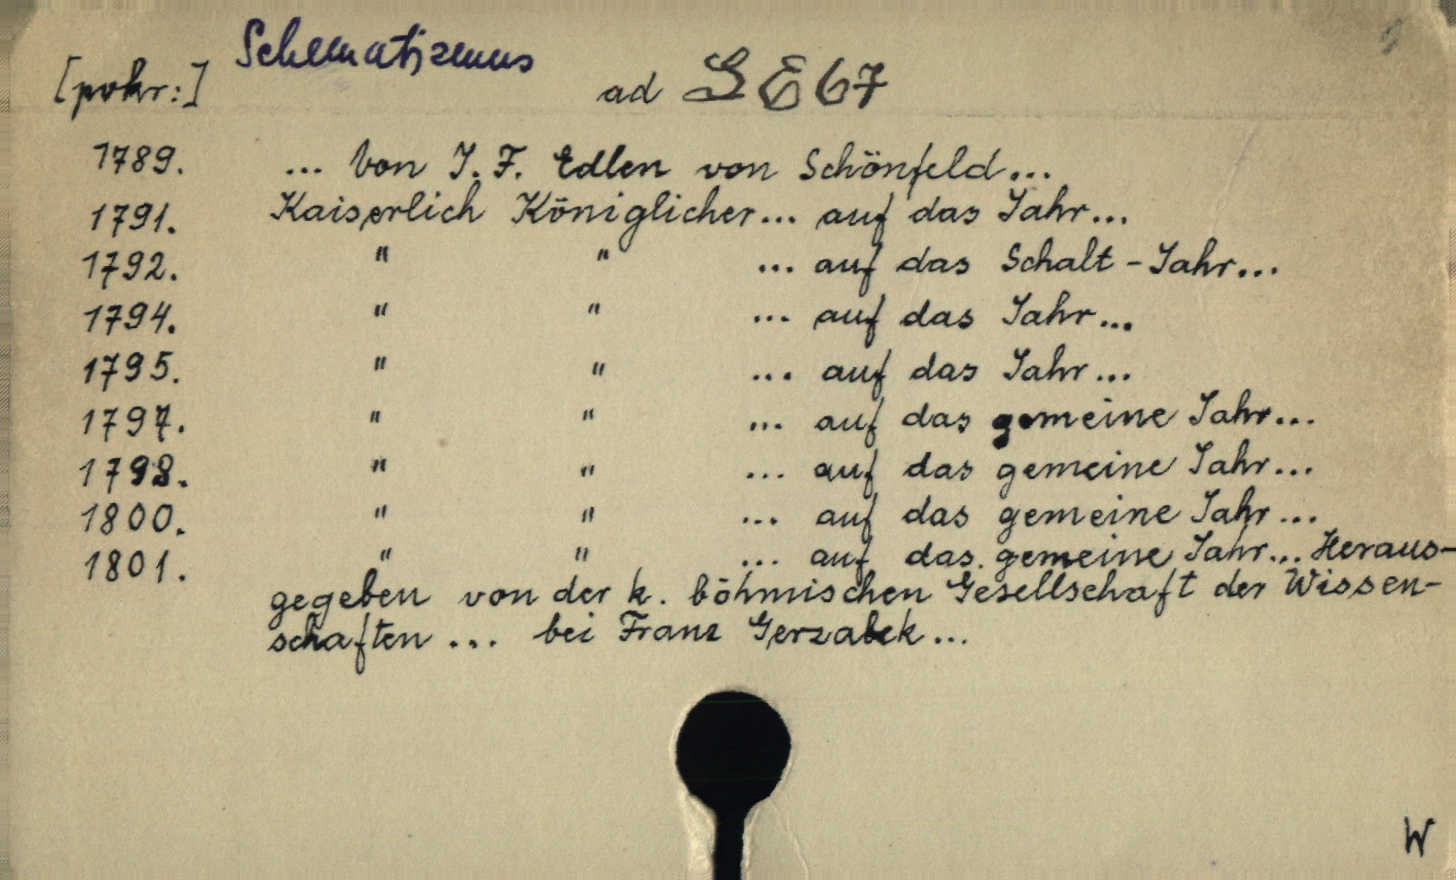 Schematizmus
[pokr:] ad SE67
1789. ... Von J. F. Edlen von Schönfeld...
1791. Kaiserlich Königlicher... auf das Jahr...
1792. " " ... auf das Schalt-Jahr...
1794. " " ... auf das Jahr...
1795. " " ... auf das Jahr...
1797. " " ... auf das gemeine Jahr...
1798. " " ... auf das gemeine Jahr...
1800. " " ... auf das gemeine Jahr...
1801. " " ... auf das gemeine Jahr... Heraus-
gegeben von der k. böhmischen Gesellschaft der Wissen-
schaften ... bei Franz Gerzabek...
W